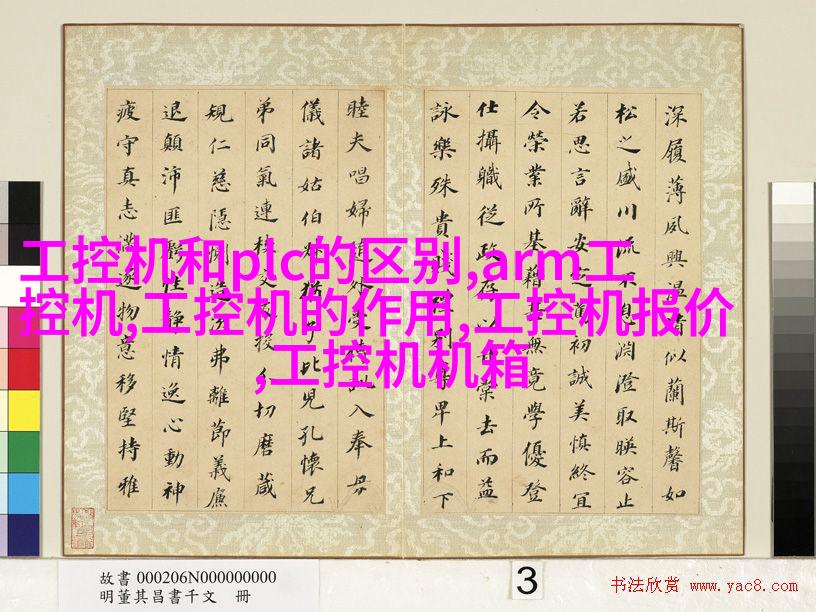 深履薄夙興溫清似蘭斯馨如
松之盛川流不息淵澄取暎容止
若思言辭安定篤初誠美慎終宜
令榮業所基籍甚無竟學優登
仕攝職從政存以甘棠去而益
詠樂殊貴賤禮別尊卑上和下
睦夫唱婦隨外受傅訓入奉母
儀諸姑伯叔猶子比兒孔懷兄
弟同氣連枝交友投分切磨箴
規仁慈隱惻造次弗離節義廉
退顛沛匪虧性靜情逸心動神
疲守真志滿逐物意移堅持雅
工控机和plc的区别,arm工
控机,工控机的作用,工控机报价
,工控机机箱
故書 000206N000000000
明董其昌書千文 冊
3
书法欣赏 www.yac8.com